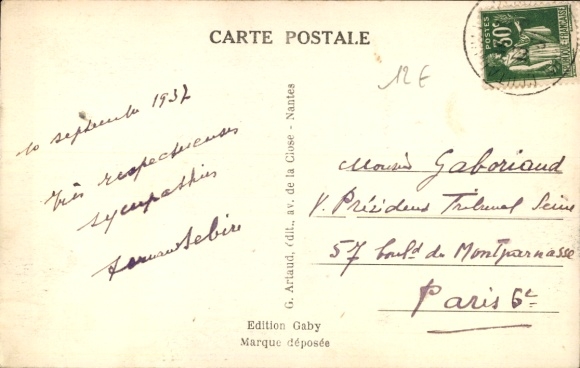 CARTE POSTALE
POSTES
30c
12 €
10 septembre 1937
Très respectueuses
sympathies
Sebire
G. Artaud, Edit., av. de la Close - Nantes
Gaboriaud
V. Président Tribunal Seine
57 boul.d de Montparnasse
Paris 6e
Edition Gaby
Marque déposée